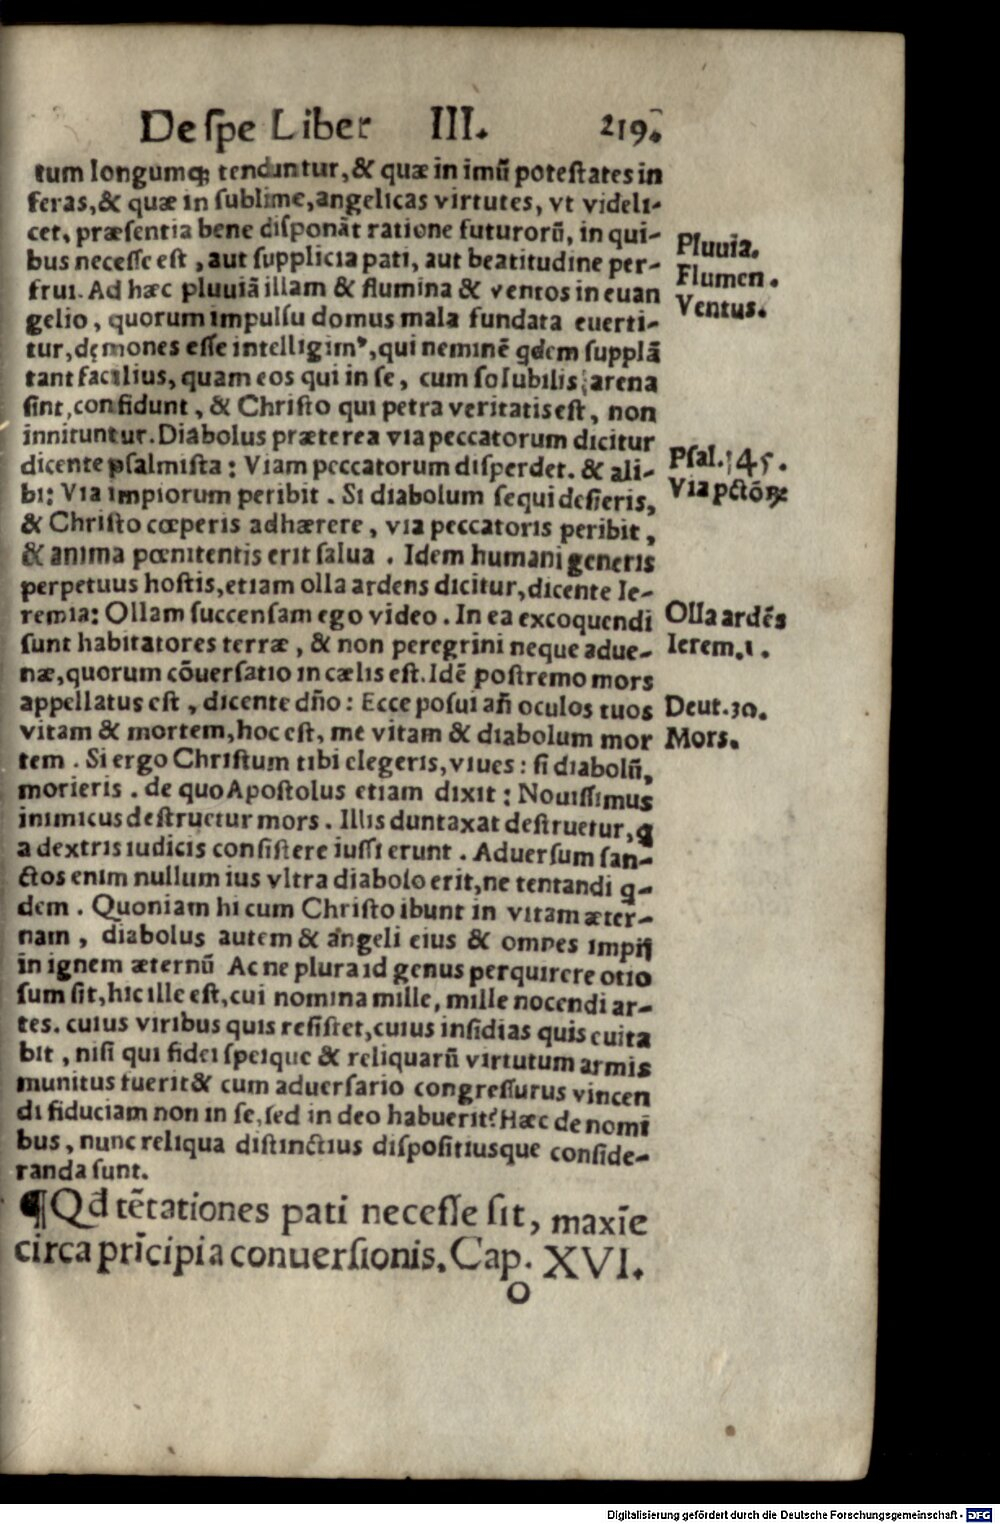 De ſpe Liber III. 219.
tum longumq; tenduntur, & quæ in imũ poteſtates in
feras, & quæ in ſublime, angelicas virtutes, vt videli-
cet, præſentia bene diſponãt ratione futurorũ, in qui-
bus neceſſe eſt, aut ſupplicia pati, aut beatitudine per-
frui. Ad hæc pluuiã illam & flumina & ventos in euan
gelio, quorum impulſu domus mala fundata euerti-
tur, dęmones eſſe intelligimꝰ, qui neminẽ qdem ſupplã
tant facilius, quam eos qui in ſe, cum ſolubilis arena
ſint, confidunt, & Chriſto qui petra veritatis eſt, non
innituntur. Diabolus præterea via peccatorum dicitur
dicente pſalmiſta: Viam peccatorum diſperdet. & ali-
bi: Via impiorum peribit. Si diabolum ſequi deſieris,
& Chriſto cœperis adhærere, via peccatoris peribit,
& anima pœnitentis erit ſalua. Idem humani generis
perpetuus hoſtis, etiam olla ardens dicitur, dicente Ie-
remia: Ollam ſuccenſam ego video. In ea excoquendi
ſunt habitatores terræ, & non peregrini neque adue-
næ, quorum cõuerſatio in cælis eſt. Idẽ poſtremo mors
appellatus eſt, dicente dño: Ecce poſui añ oculos tuos
vitam & mortem, hoc eſt, me vitam & diabolum mor
tem. Si ergo Chriſtum tibi elegeris, viues: ſi diabolũ,
morieris. de quo Apoſtolus etiam dixit: Nouiſſimus
inimicus deſtruetur mors. Illis duntaxat deſtruetur, q
a dextris iudicis conſiſtere iuſſi erunt. Aduerſum ſan-
ctos enim nullum ius vltra diabolo erit, ne tentandi q-
dem. Quoniam hi cum Chriſto ibunt in vitam æter-
nam, diabolus autem & angeli eius & omnes impij
in ignem æternũ Ac ne plura id genus perquirere otio
ſum ſit, hic ille eſt, cui nomina mille, mille nocendi ar-
tes. cuius viribus quis reſiſtet, cuius inſidias quis euita
bit, niſi qui fidei ſpeique & reliquarũ virtutum armis
munitus fuerit & cum aduerſario congreſſurus vincen
di fiduciam non in ſe, ſed in deo habuerit? Hæc de nomi
bus, nunc reliqua diſtinctius diſpoſitiusque conſide-
randa ſunt.
¶ Qd tẽtationes pati neceſſe ſit, maxĩe
circa prĩcipia conuerſionis. Cap. XVI.
O
Pluuia.
Flumen.
Ventus.
Pſal. 145.
Via pctõꝝ
Olla ardẽs
Ierem. 1.
Deut. 30.
Mors.
Digitalisierung gefördert durch die Deutsche Forschungsgemeinschaft - DFG